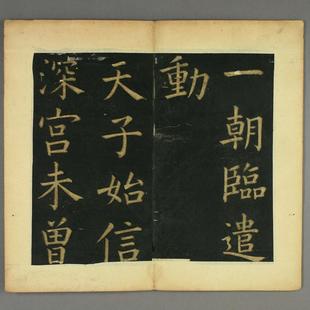 一朝臨遣
動
天子始信
深宮未曾